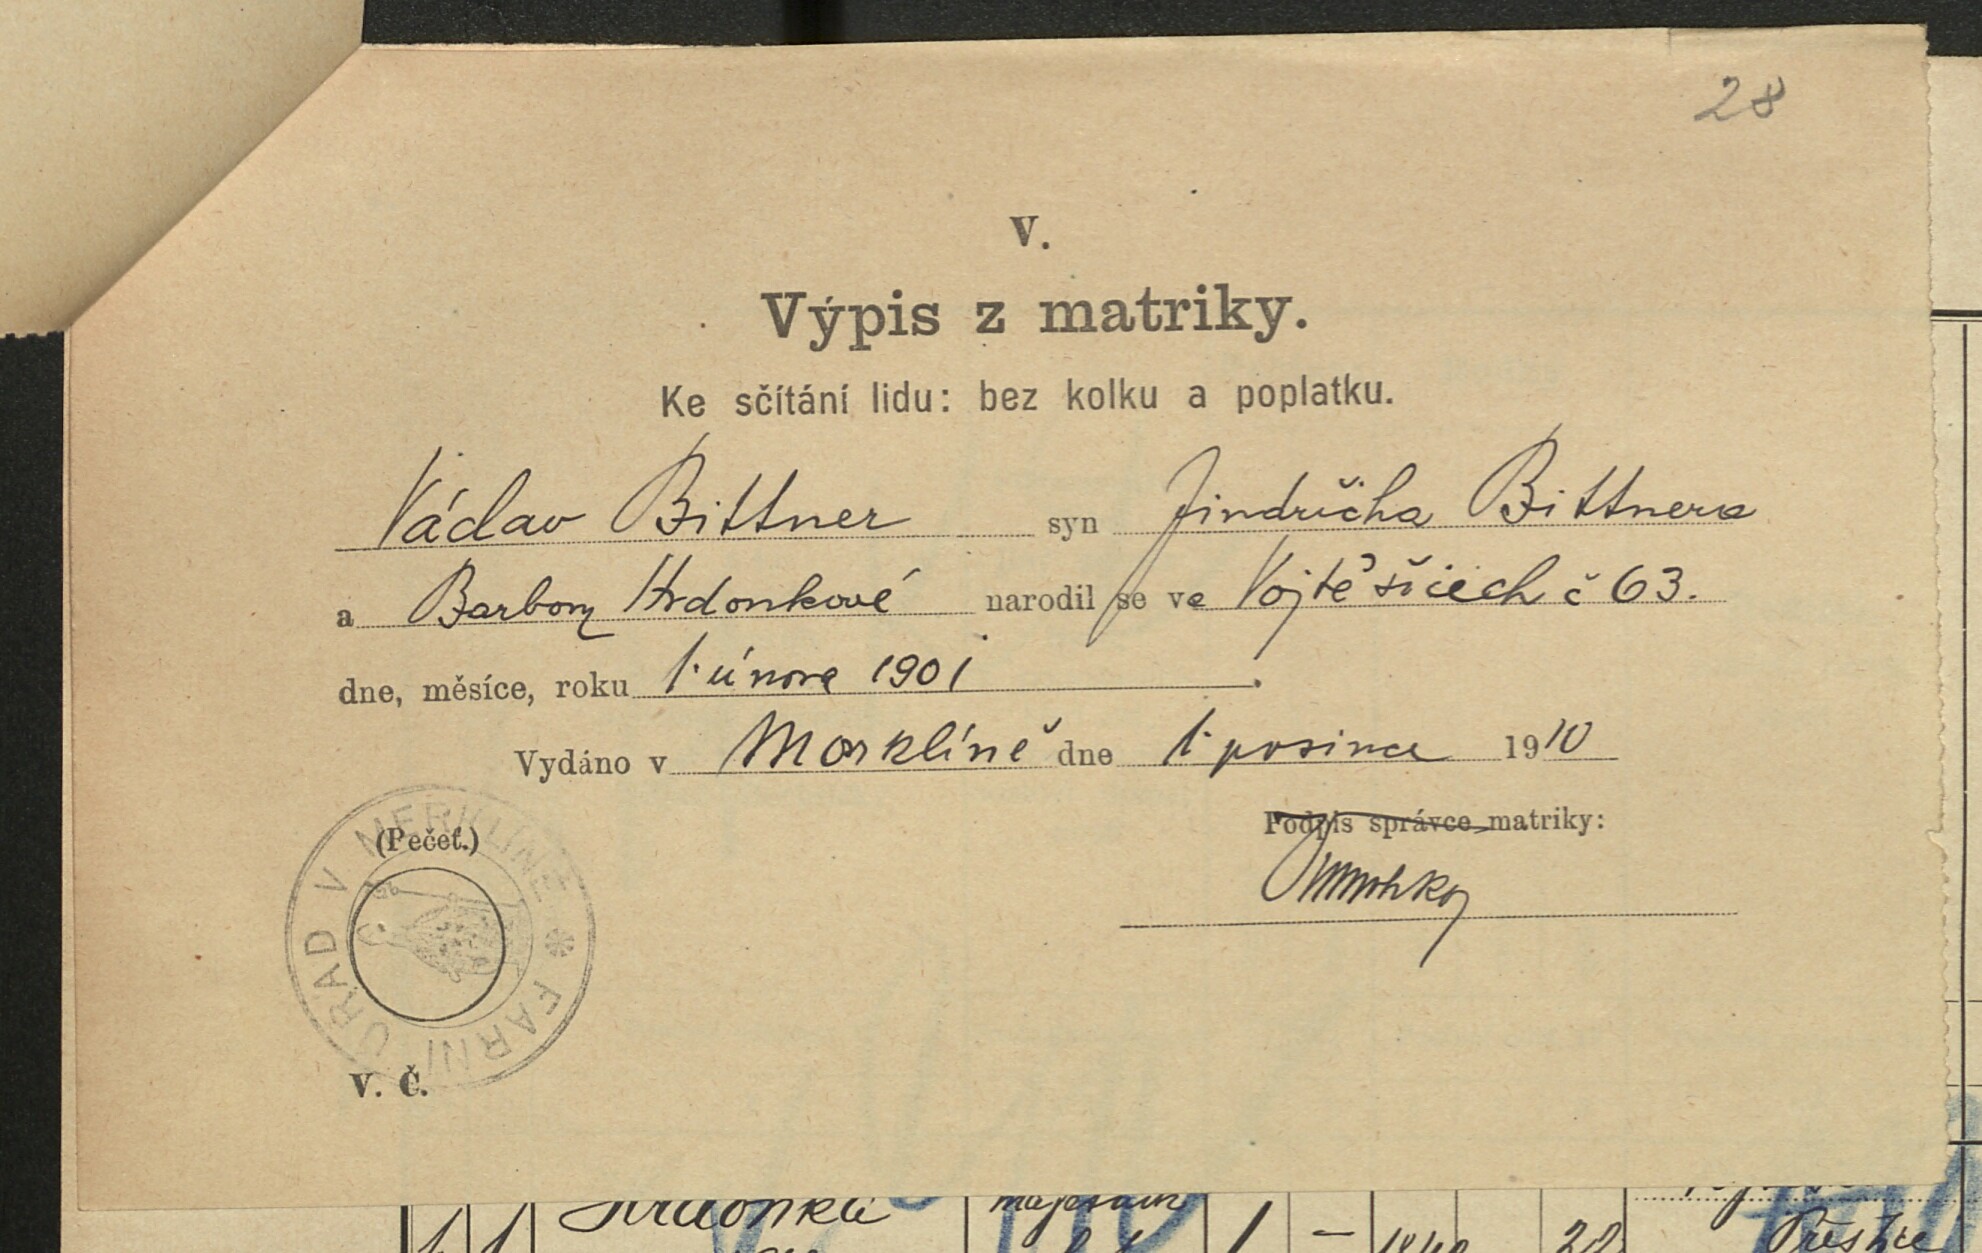 28
V.
Výpis z matriky.
Ke sčítání lidu: bez kolku a poplatku.
Václav Bittner syn Jindřicha Bittnera
a Barbory Hrdonkové narodil se ve Vojtěšicech č 63.
dne, měsíce, roku 1. února 1901.
Vydáno v Merklíně dne 1. prosince 1910
(Pečeť.)
Podpis správce matriky:
FARNÍ ÚŘAD V MERKLÍNĚ
V. Č.
1 – 1840 22 Přeštice